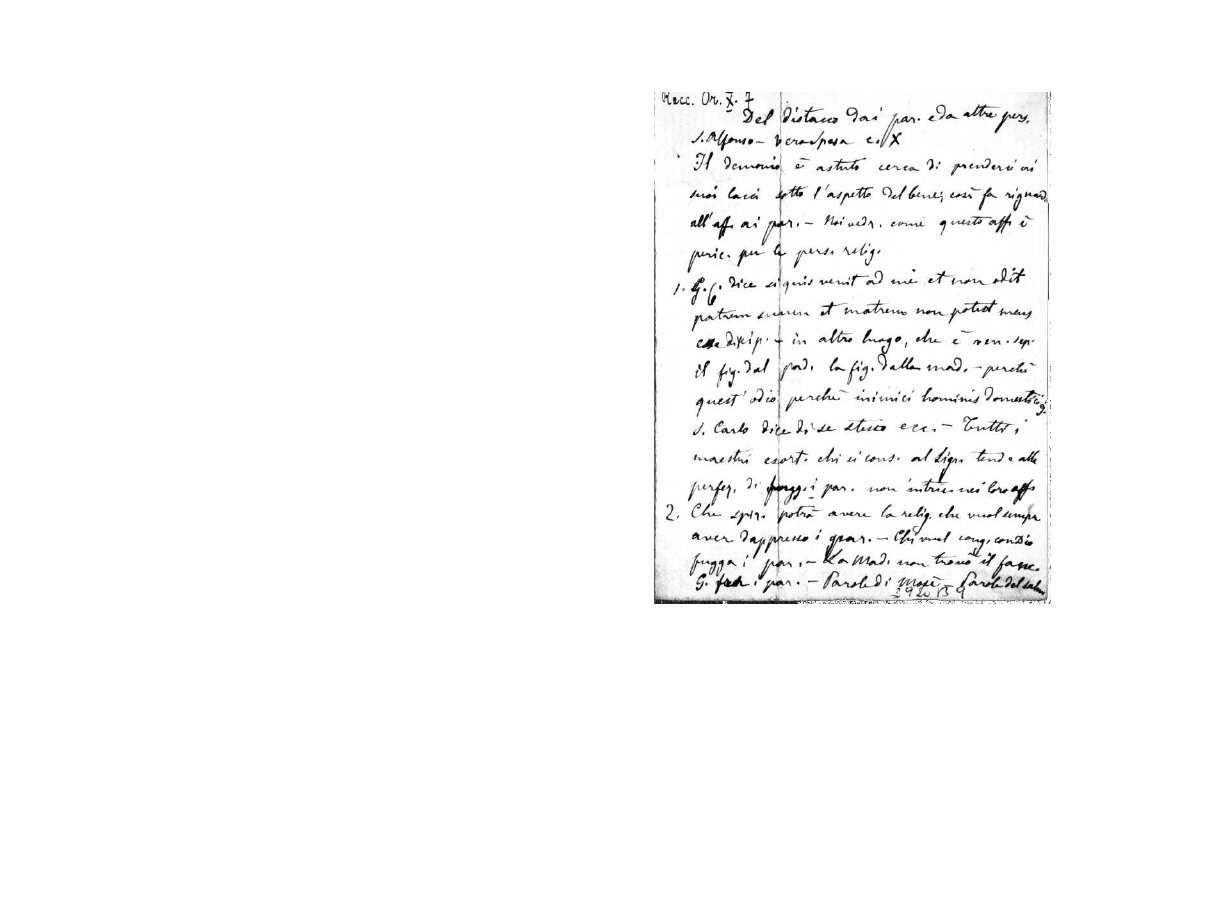 Racc. Or. X. 7
Del distacco dai par. e da altre pers.
S. Alfonso - vera sposa c. X
Il demonio è astuto cerca di prenderci ai
suoi lacci sotto l'aspetto del bene; così fa riguard.
all'aff. ai par. - Noi vedr. come questo aff. è
peric. per le pers. relig.
1. G. C. dice si quis venit ad me et non odit
patrem suum et matrem non potest meus
esse discip. - in altro luogo, che è ven. sep.
il fig. dal pad. la fig. dalla mad. - perché
quest'odio perché inimici hominis domestici
S. Carlo dice di se stesso ecc. - Tutti i
maestri esort. chi si cons. al Sign. tende alla
perfez. di fugg. i par. non intric. nei loro aff.
2. Che spir. potrà avere la relig. che vuol sempr
aver dappresso i par. - Chi vuol cong. con Dio
fugga i par. - La Mad. non trovò il fanc.
G. fra i par. - Parole di Mosè - Parole del salm
2920 B 9